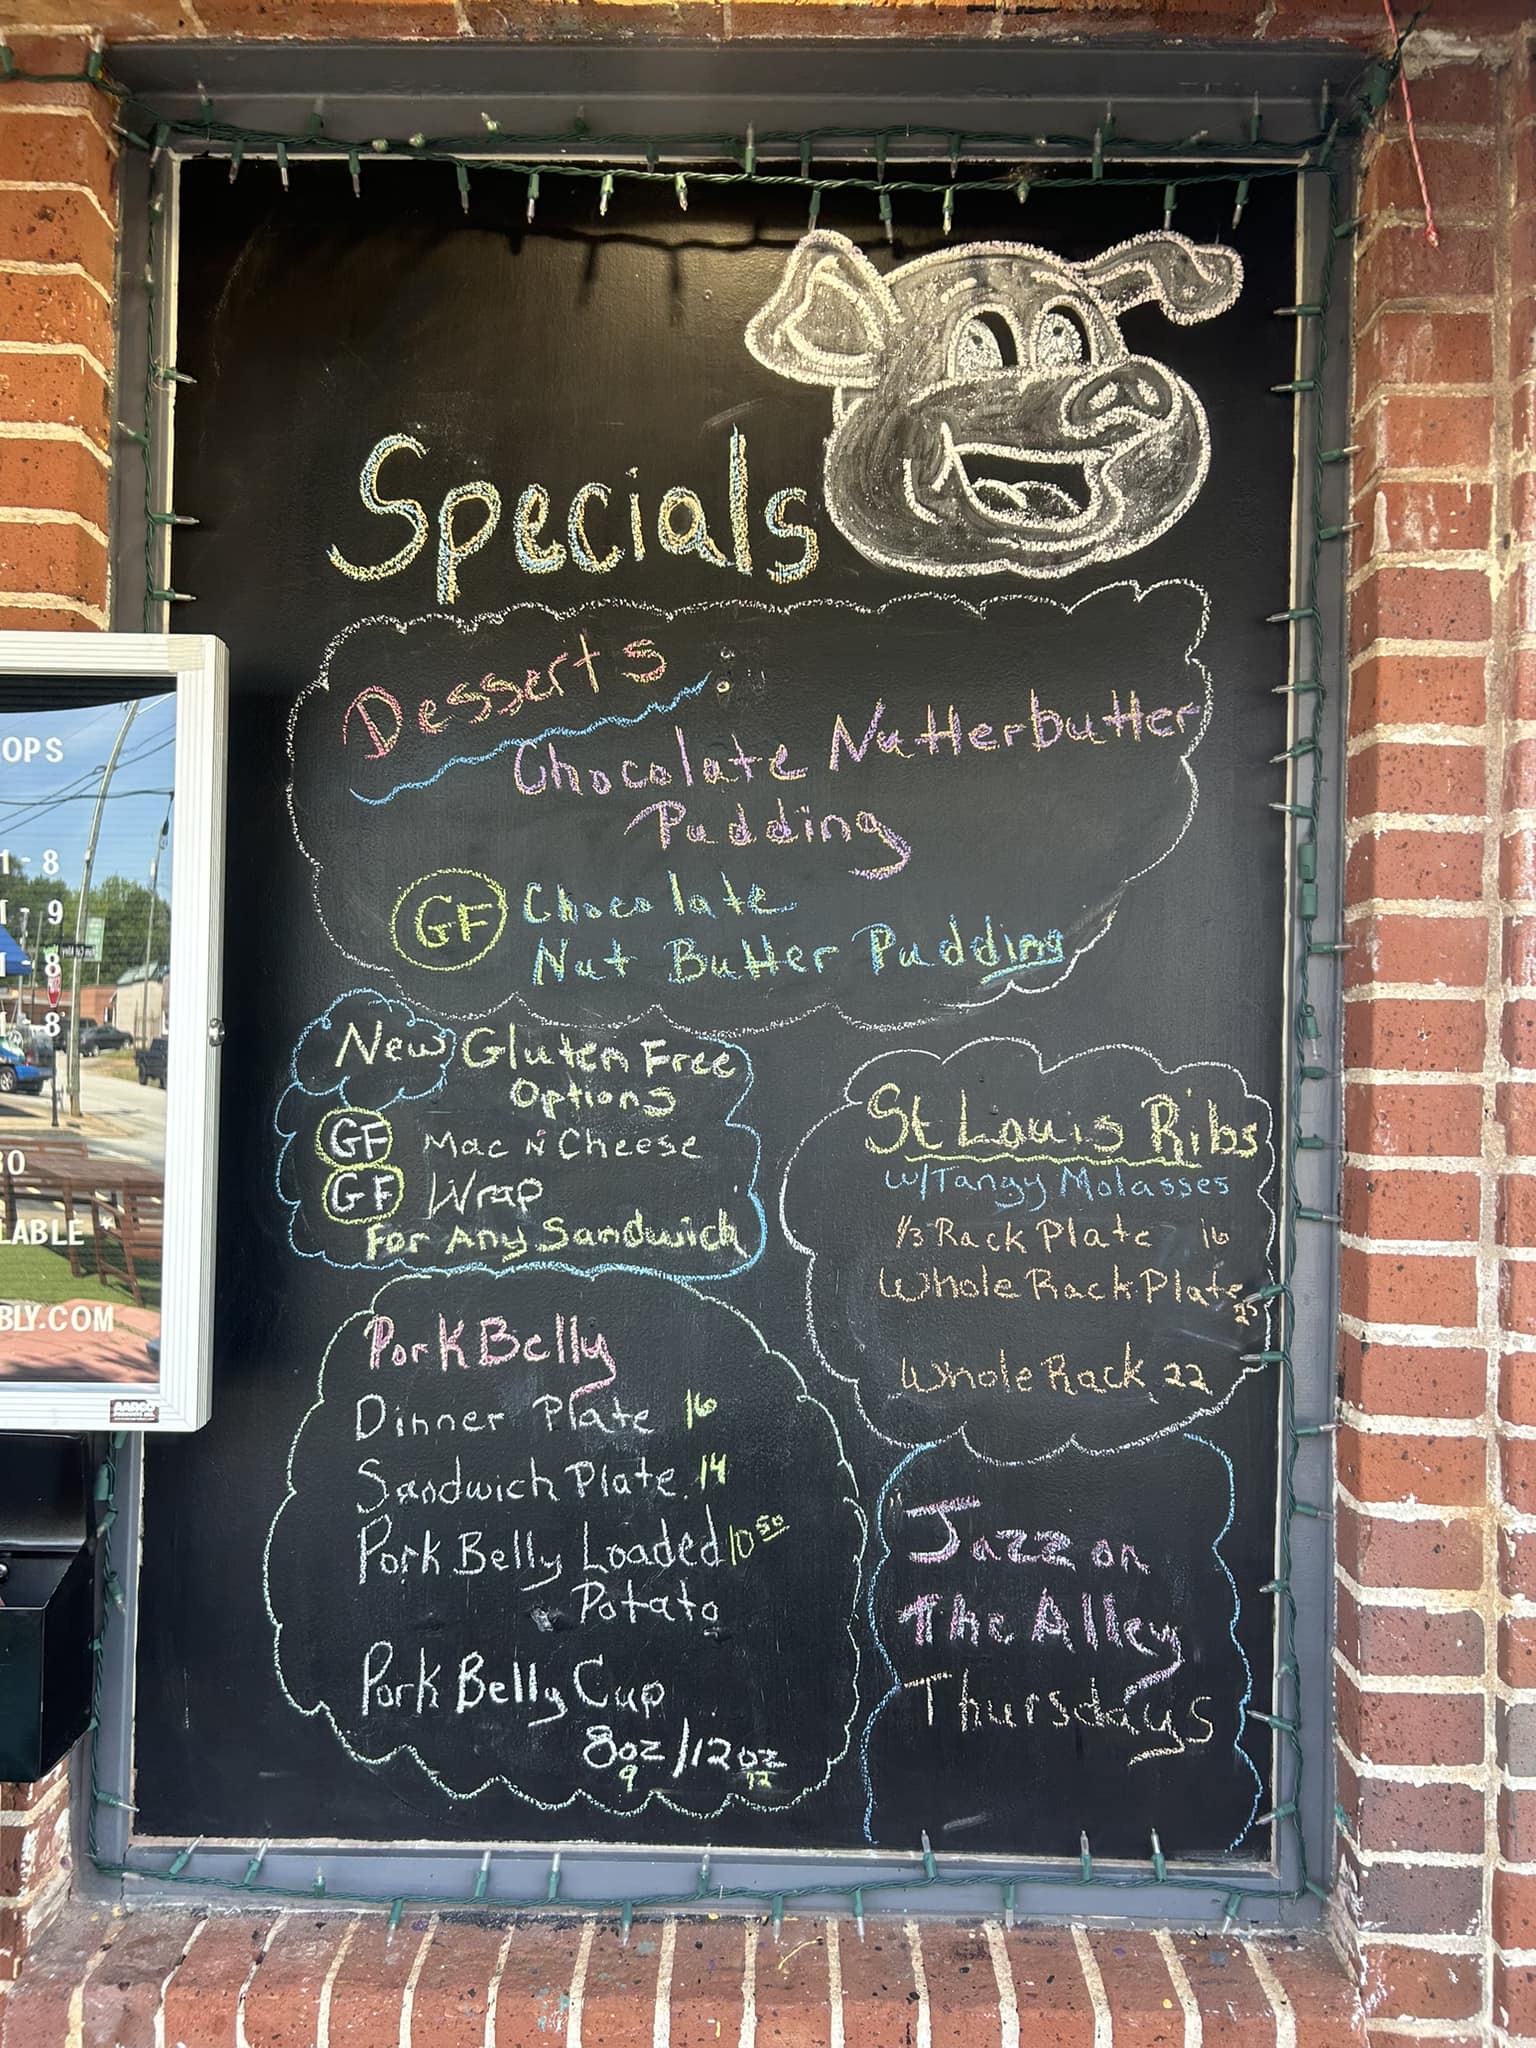 Specials
Desserts
Chocolate Nutterbutter
Pudding
GF Chocolate
Nut Butter Pudding
New Gluten Free
Options
GF Mac N Cheese
GF Wrap
For Any Sandwich
St Louis Ribs
w/Tangy Molasses
1/3 Rack Plate 16
Whole Rack Plate
25
Whole Rack 22
Pork Belly
Dinner Plate 16
Sandwich Plate 14
Pork Belly Loaded 10 50
Potato
Pork Belly Cup
8oz/12oz
9 12
Jazz on
The Alley
Thursdays
OPS
1-8
9
8
8
30
LABLE *
BLY.COM
AARCO